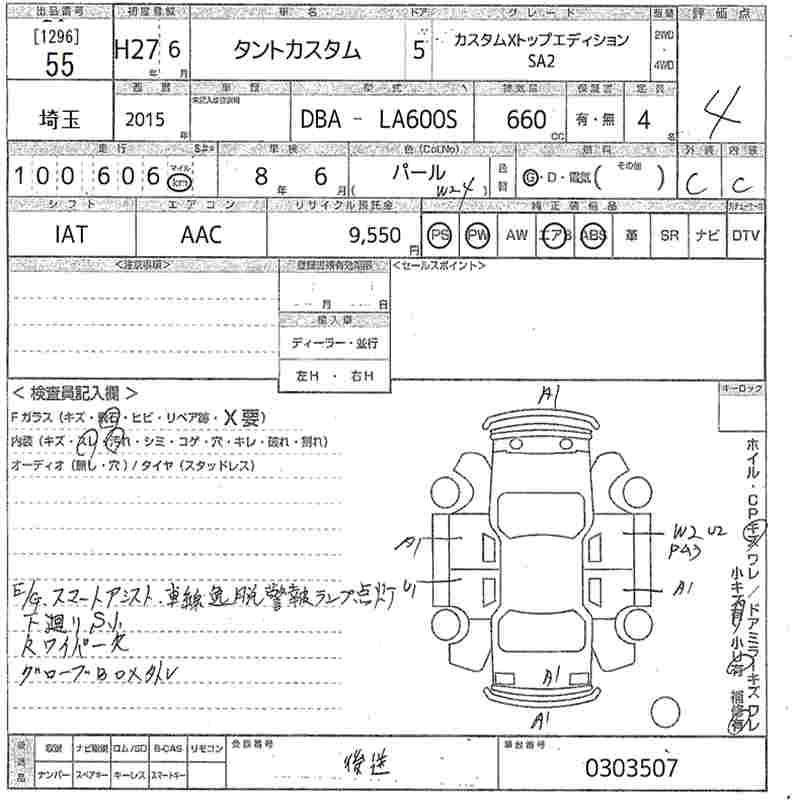 出品番号 初度登録 車名 ドア グレード 駆動 評価点
[1296]
55
H27 年 6 月
タントカスタム
5
カスタムXトップエディション
SA2
2WD
4WD
4
埼玉
西暦 車歴 型式 排気量 保証書 定員
2015 年
DBA - LA600S
660 CC
有・無
4 名
走行 車検 色(Col,No) 燃料 外装 内装
100606 マイル km
8 年 6 月
パール
(W24)
G・D・電気( その他 )
C
C
シフト エアコン リサイクル預託金 純正装備品
IAT
AAC
9,550 円
PS PW AW エアB ABS 革 SR ナビ DTV
<注意事項>
月 日
<セールスポイント>
輸入車
ディーラー・並行
左H ・ 右H
<検査員記入欄>
キーロック
Fガラス(キズ・飛石・ヒビ・リペア跡・X要)
内装(キズ・スレ・汚れ・シミ・コゲ・穴・キレ・破れ・割れ)
オーディオ(無し・穴)/タイヤ(スタッドレス)
A1
A1
U1
W2 U2
PA3
A1
A1
A1
E/G.スマートアシスト.車線逸脱警報ランプ点灯
下廻りS.小
Rワイパー欠
グローブBOX外レ
ホイル・CPキズワレ/ドアミラーキズワレ
小キズ有
小U有
補修有
取説 ナビ取説 ロム/SD B-CAS リモコン
ナンバー スペアキー キーレス スマートキー
後送
車台番号
0303507